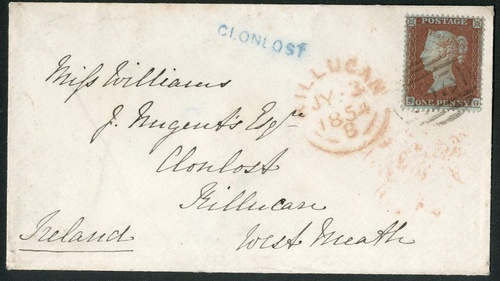 CLONLOST
POSTAGE
ONE PENNY
KILLUCAN
JY 3
1854
B
Miss Williams
J. Nugent's Esqre
Clonlost
Killucan
West Meath
Ireland